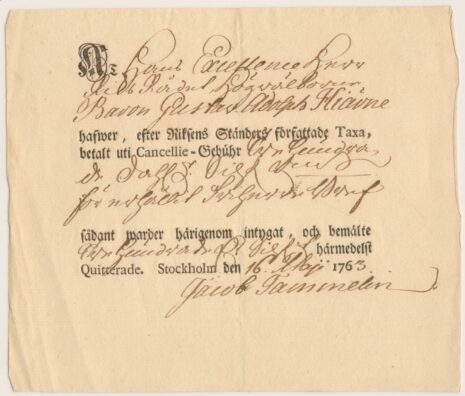 At Hans Excellence Herr
Riks Rådet Högvälborne
Baron Gustav Adolph Hiärne
hafwer, efter Riksens Ständers författade Taxa,
betalt uti Cancellie-Gebühr Trehundra
de Dal
för
sådant warder härigenom intygat, och bemälte
Trehundrade härmedelst
Quitterade. Stockholm den 16 Maji 1763
Jacob Tammelin